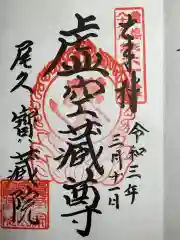 奉拝
令和三年
二月十一日
虚空蔵尊
尾久
寶蔵院